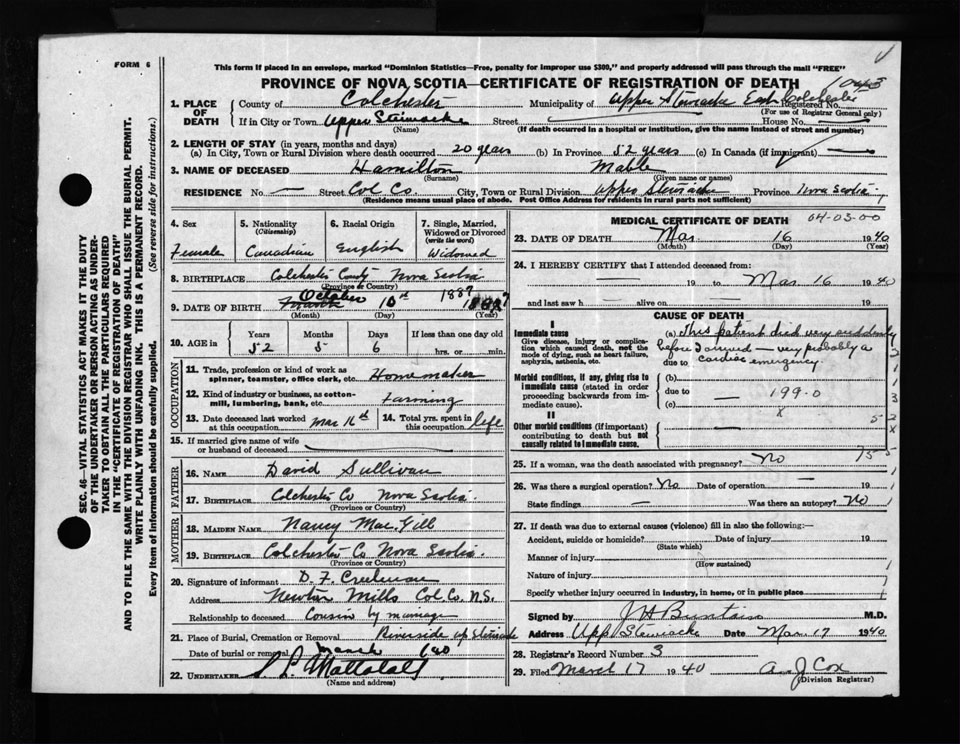 FORM 6
This form if placed in an envelope, marked "Dominion Statistics—Free, penalty for improper use $300," and properly addressed will pass through the mail "FREE"
PROVINCE OF NOVA SCOTIA—CERTIFICATE OF REGISTRATION OF DEATH
1. PLACE OF DEATH County of Colchester Municipality of Upper Stewiacke East Colchester Registered No.
(For use of Registrar General only)
If in City or Town Upper Stewiacke Street House No.
(Name) (If death occurred in a hospital or institution, give the name instead of street and number)
2. LENGTH OF STAY (in years, months and days)
(a) In City, Town or Rural Division where death occurred 20 years (b) In Province 52 years (c) In Canada (if immigrant) —
3. NAME OF DECEASED Hamilton Mable
(Surname) (Given name or names)
RESIDENCE No. — Street Col Co. City, Town or Rural Division Upper Stewiacke Province Nova Scotia
(Residence means usual place of abode. Post Office Address for residents in rural parts not sufficient)
SEC. 46—VITAL STATISTICS ACT MAKES IT THE DUTY
OF THE UNDERTAKER OR PERSON ACTING AS UNDER-
TAKER TO OBTAIN ALL THE PARTICULARS REQUIRED
IN THE "CERTIFICATE OF REGISTRATION OF DEATH"
AND TO FILE THE SAME WITH THE DIVISION REGISTRAR WHO SHALL ISSUE THE BURIAL PERMIT.
WRITE PLAINLY WITH UNFADING INK. THIS IS A PERMANENT RECORD.
Every item of information should be carefully supplied. (See reverse side for instructions.)
4. Sex
Female
5. Nationality
(Citizenship)
Canadian
6. Racial Origin
English
7. Single, Married,
Widowed or Divorced
(write the word)
Widowed
8. BIRTHPLACE Colchester County Nova Scotia
(Province or Country)
9. DATE OF BIRTH October 10th 1887
(Month) (Day) (Year)
10. AGE in Years Months Days If less than one day old
52 5 6 hrs. or min.
OCCUPATION
11. Trade, profession or kind of work as
spinner, teamster, office clerk, etc. Homemaker
12. Kind of industry or business, as cotton-
mill, lumbering, bank, etc. Farming
13. Date deceased last worked
at this occupation Mar 16th
14. Total yrs. spent in
this occupation life
15. If married give name of wife
or husband of deceased
FATHER
16. NAME David Sullivan
17. BIRTHPLACE Colchester Co Nova Scotia.
(Province or Country)
MOTHER
18. MAIDEN NAME Nancy Mac Gill
19. BIRTHPLACE Colchester Co Nova Scotia.
(Province or Country)
20. Signature of informant D. F. Creelman
Address Newton Mills Col Co. N.S.
Relationship to deceased Cousin by marriage
21. Place of Burial, Cremation or Removal Riverside up Stewiacke
Date of burial or removal March 1940
22. UNDERTAKER
(Name and address)
MEDICAL CERTIFICATE OF DEATH 04-03-00
23. DATE OF DEATH Mar. 16 1940
(Month) (Day) (Year)
24. I HEREBY CERTIFY that I attended deceased from:
— 19 to Mar 16 1940
and last saw h — alive on — 19
CAUSE OF DEATH
I
Immediate cause
Give disease, injury or complica-
tion which caused death, not the
mode of dying, such as heart failure,
asphyxia, asthenia, etc.
(a) This patient died very suddenly
before I arrived — very probably a
due to cardiac emergency.
Morbid conditions, if any, giving rise to
immediate cause (stated in order
proceeding backwards from im-
mediate cause).
(b) —
due to 199-0
(c) —
II
Other morbid conditions (if important)
contributing to death but not
causally related to immediate cause.
25. If a woman, was the death associated with pregnancy? No
26. Was there a surgical operation? No Date of operation — 19
State findings — Was there an autopsy? No
27. If death was due to external causes (violence) fill in also the following:—
Accident, suicide or homicide? Date of injury 19
(State which)
Manner of injury
(How sustained)
Nature of injury
Specify whether injury occurred in industry, in home, or in public place
Signed by M.D.
Address Upp Stewiacke Date Mar 17 1940
28. Registrar's Record Number 3
29. Filed March 17 1940 A J Cox
(Division Registrar)